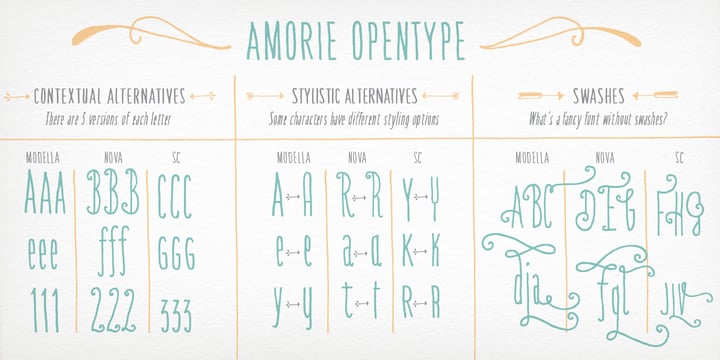 AMORIE OPENTYPE
CONTEXTUAL ALTERNATIVES
There are 5 versions of each letter
MODELLA NOVA SC
AAA BBB CCC
eee fff GGG
111 222 333
STYLISTIC ALTERNATIVES
Some characters have different styling options
MODELLA NOVA SC
A A R R Y Y
e e a a K K
y y t t R R
SWASHES
What's a fancy font without swashes?
MODELLA NOVA SC
ABC DEG FHG
dja fgl JLV